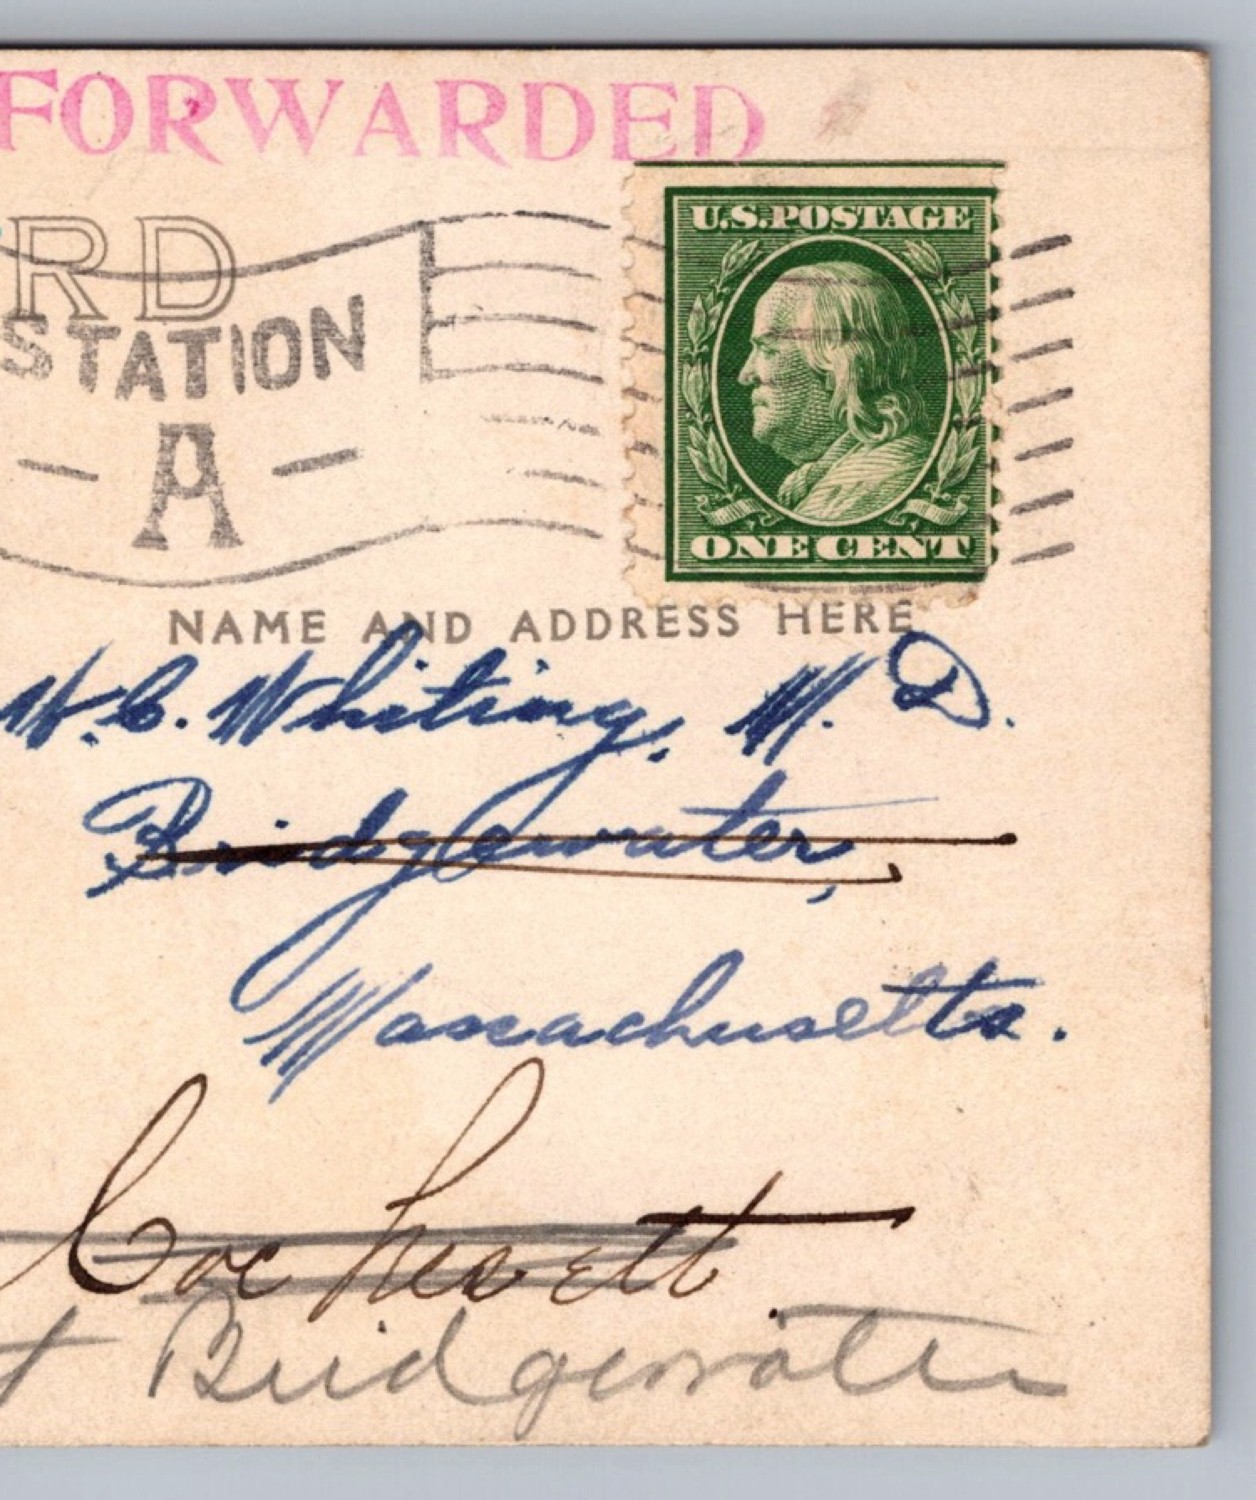 FORWARDED
RD
STATION
A
U.S. POSTAGE
ONE CENT
NAME AND ADDRESS HERE
W. C. Whiting, M. D.
Bridgewater,
Massachusetts.
t Bridgewater